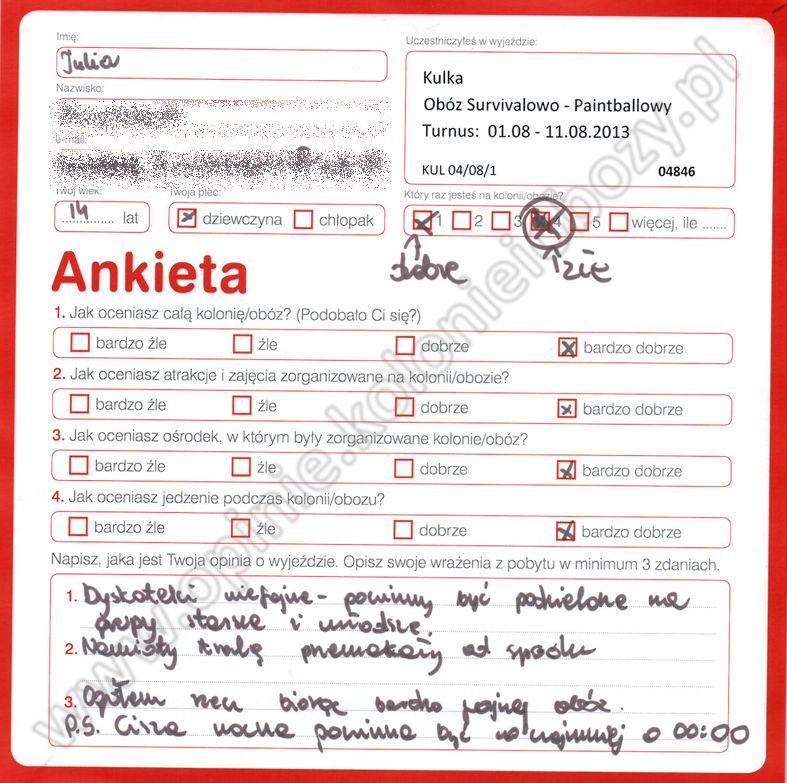 Imię:
Julia
Nazwisko:
e-mail:
Twój wiek:
14 lat
Twoja płeć:
dziewczyna chłopak
Uczestniczyłeś w wyjeździe:
Kulka
Obóz Survivalowo - Paintballowy
Turnus: 01.08 - 11.08.2013
KUL 04/08/1 04846
Który raz jesteś na kolonii/obozie?
1 2 3 4 5 więcej, ile .......
dobre źle
Ankieta
1. Jak oceniasz całą kolonię/obóz? (Podobało Ci się?)
bardzo źle źle dobrze bardzo dobrze
2. Jak oceniasz atrakcje i zajęcia zorganizowane na kolonii/obozie?
bardzo źle źle dobrze bardzo dobrze
3. Jak oceniasz ośrodek, w którym były zorganizowane kolonie/obóz?
bardzo źle źle dobrze bardzo dobrze
4. Jak oceniasz jedzenie podczas kolonii/obozu?
bardzo źle źle dobrze bardzo dobrze
Napisz, jaka jest Twoja opinia o wyjeździe. Opisz swoje wrażenia z pobytu w minimum 3 zdaniach.
1. Dyskoteki niefajne - powinny być podzielone na
grupy starsze i młodsze.
2. Namioty trochę przemakały od spodu
3. Ogółem rzecz biorąc bardzo fajny obóz.
P.S. Cisza nocna powinna być co najmniej o 00:00
www.opinie.kolonieiobozy.pl